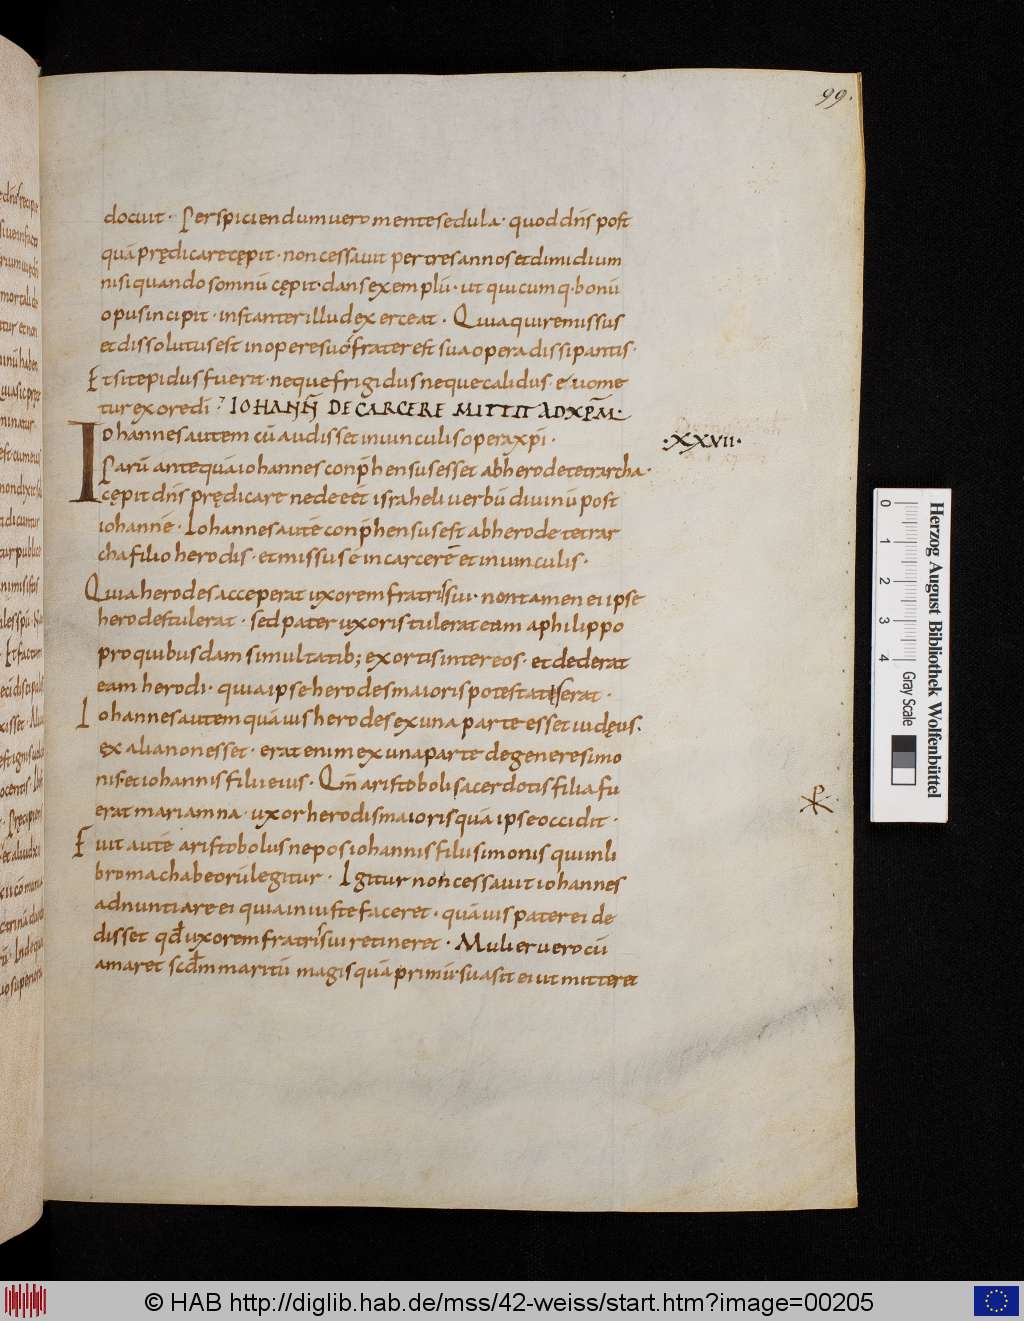 99.
docuit · Perspiciendum uero mente sedula · quod dn̄s post
quā prędicare cępit · non cessauit per tres annos et dimidium
nisi quando somnū cępit · dans exemplū · ut quicumq · bonū
opus incipit · instanter illud exerceat · Quia qui remissus
et dissolutus est in opere suo frater est sua opera dissipantis ·
Et si tepidus fuerit · neque frigidus neque calidus · euome
tur ex ore di ·
IOHANN̄ DE CARCERE MITTIT AD XPM̄ ·
Iohannes autem cū audisset in uinculis opera xp̄i ·
·XXVII·
Parū antequā iohannes conp̄hensus esset ab herode tetrarcha ·
cępit dn̄s prędicare
israheli uerbū diuinū post
iohannē · Iohannes autē conp̄hensus est ab herode tetrar
cha filio herodis · et missus ē in carcerē et in uinculis ·
Quia herodes acceperat uxorem fratris sui · non tamen ei ipse
herodes tulerat · sed pater uxoris tulerat eam a philippo
pro quibusdam simultatib; exortis inter eos · et dederat
eam herodi · quia ipse herodes maioris potestatis erat ·
Iohannes autem quāuis herodes ex una parte esset iudęus ·
ex alia non esset · erat enim ex una parte de genere simo
nis et iohannis filii eius · Qm̄ aristoboli sacerdotis filia fu
erat mariamna · uxor herodis maioris quā ipse occidit ·
Fuit autē aristobolus nepos iohannis filii simonis qui in li
bro machabeorū legitur · Igitur non cessauit iohannes
adnuntiare ei quia iniuste faceret · quāuis pater ei de
disset qd̄ uxorem fratris sui retineret · Mulier uero cū
amaret scd̄m maritū magis quā primū suasit ei ut mitteret
Herzog August Bibliothek Wolfenbüttel
0 1 2 3 4
Gray Scale
© HAB http://diglib.hab.de/mss/42-weiss/start.htm?image=00205